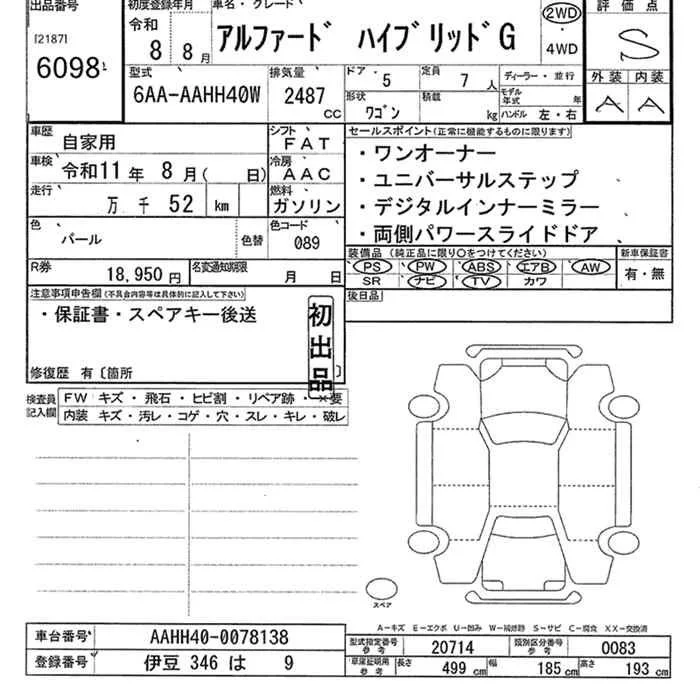 出品番号
[2187]
6098
初度登録年月
令和
8 8月
車名・グレード
アルファード ハイブリッドG
2WD
・
4WD
評価点
S
外装 内装
A A
型式
6AA-AAHH40W
排気量
2487
CC
ドア
5
定員
7 人
形状
ワゴン
積載
kg
ディーラー・並行
モデル年式 年
ハンドル 左・右
車歴
自家用
シフト
FAT
車検
令和11年 8月( 日)
冷房
AAC
走行
万 千 52 km
燃料
ガソリン
色
パール
色替
色コード
089
R券
18,950円
名変通知期限
月 日
セールスポイント(正常に機能するものに限ります)
・ワンオーナー
・ユニバーサルステップ
・デジタルインナーミラー
・両側パワースライドドア
装備品 (純正品に限り○をつけてください)
PS PW ABS エアB AW
SR ナビ TV カワ
新車保証書
有・無
後日品
注意事項申告欄(不具合内容等は具体的に記入して下さい)
・保証書・スペアキー後送
初出品
修復歴 有〔箇所 〕
検査員記入欄
FW キズ・飛石・ヒビ割・リペア跡・×要
内装 キズ・汚レ・コゲ・穴・スレ・キレ・破レ
スペア
A-キズ E-エクボ U-凹み W-補修跡 S-サビ C-腐食 XX-交換済
車台番号
AAHH40-0078138
登録番号
伊豆 346 は 9
型式指定番号
参考
20714
類別区分番号
参考
0083
車庫証明用
参考
長さ
499 cm
幅
185 cm
高さ
193 cm